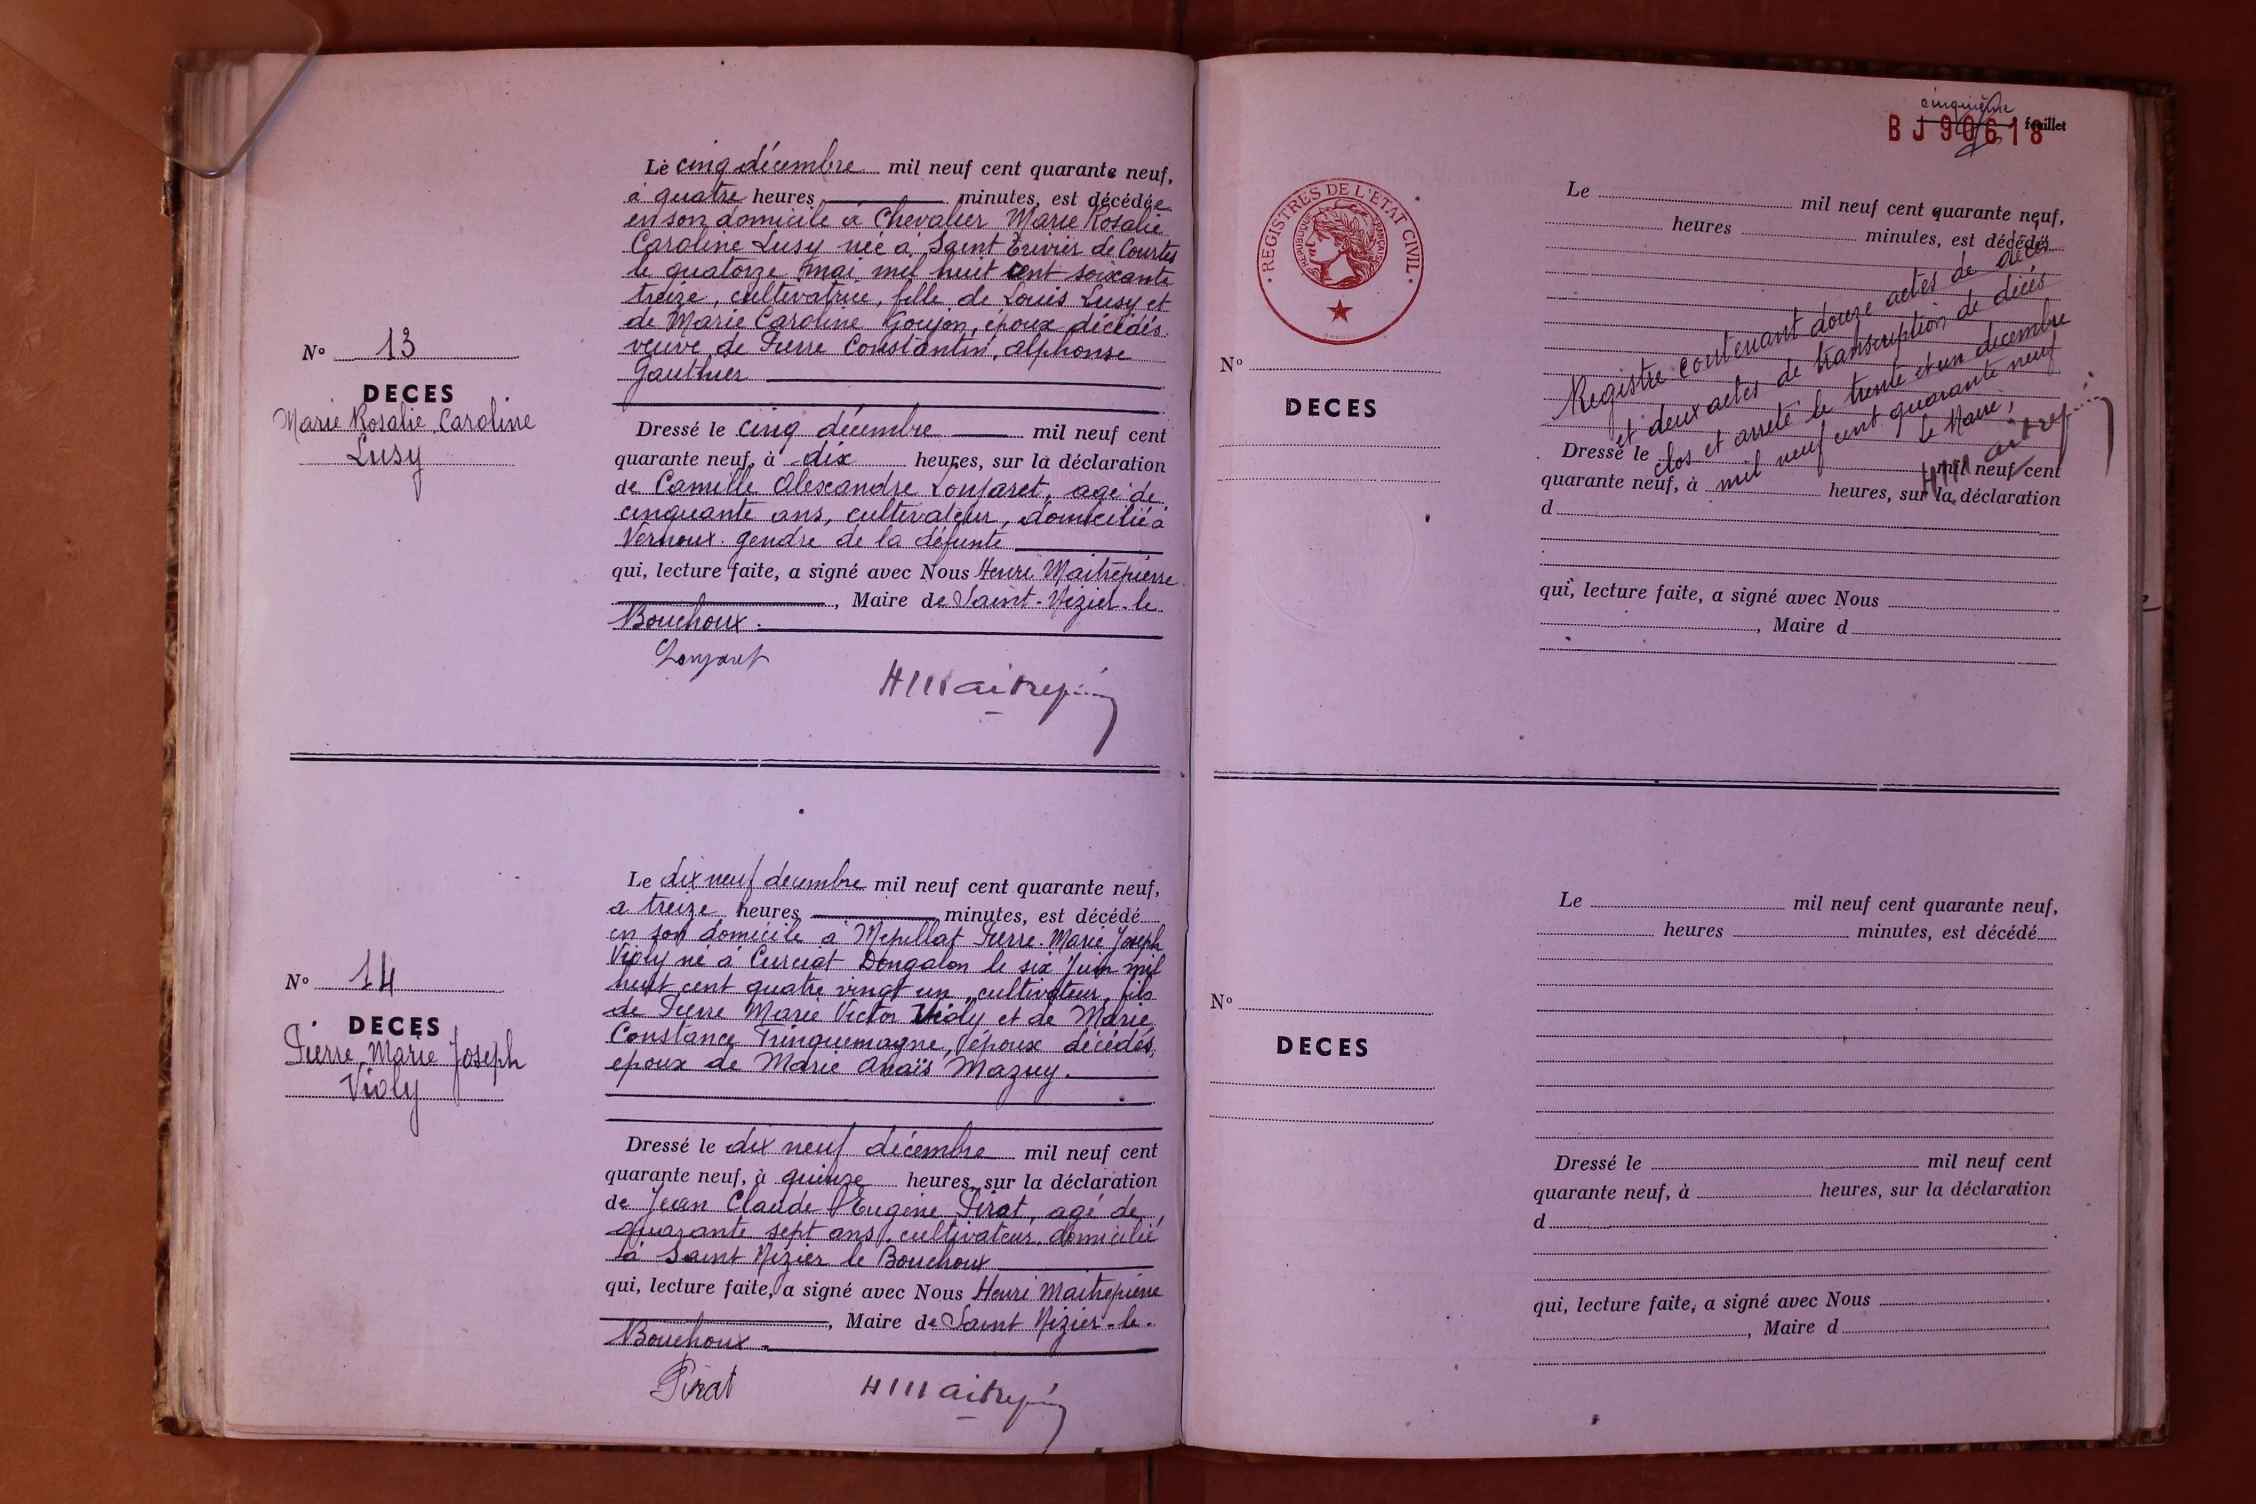 Le cinq décembre mil neuf cent quarante neuf,
à quatre heures minutes, est décédée
en son domicile à Chevalier Marie Rosalie
Caroline Lusy née à Saint Trivier de Courtes
le quatorze mai mil huit cent soixante
treize, cultivatrice, fille de Louis Lusy et
de Marie Caroline Goujon, époux décédés
veuve de Pierre Constantin, alphonse
Gauthier
N° 13
DECES
Marie Rosalie Caroline
Lusy
Dressé le cinq décembre mil neuf cent
quarante neuf, à dix heures, sur la déclaration
de Camille Alexandre Lonjaret, agé de
cinquante ans, cultivateur, domicilié à
Vernoux. gendre de la défunte
qui, lecture faite, a signé avec Nous Henri Maitrepierre
, Maire de Saint-Nizier-le-
Bouchoux.
Lonjaret
HMaitrepierre
Le dix neuf decembre mil neuf cent quarante neuf,
a treize heures minutes, est décédé
en son domicile à Mépillat Pierre Marie Joseph
Violy né à Curciat Dongalon le six Juin mil
huit cent quatre vingt un, cultivateur, fils
de Pierre Marie Victor Violy et de Marie
Constance Trinquemagne, époux décédés,
epoux de Marie Anaïs Mazuy.
N° 14
DECES
Pierre Marie Joseph
Violy
Dressé le dix neuf décembre mil neuf cent
quarante neuf, à quinze heures, sur la déclaration
de Jean Claude Eugène Pirat, agé de
quarante sept ans, cultivateur, domicilié
à Saint Nizier le Bouchoux
qui, lecture faite, a signé avec Nous Henri Maitrepierre
, Maire de Saint Nizier-le-
Bouchoux.
Pirat
HMaitrepierre
cinquième
BJ 90618 feuillet
REGISTRES DE L'ETAT CIVIL
REPUBLIQUE FRANÇAISE
Le mil neuf cent quarante neuf,
heures minutes, est décédé
Registre contenant douze actes de décès
et deux actes de transcription de décès
clos et arrêté le trente et un decembre
mil neuf cent quarante neuf
Le Maire,
HMaitrepierre
N°
DECES
Dressé le mil neuf cent
quarante neuf, à heures, sur la déclaration
d
qui, lecture faite, a signé avec Nous
, Maire d
Le mil neuf cent quarante neuf,
heures minutes, est décédé
N°
DECES
Dressé le mil neuf cent
quarante neuf, à heures, sur la déclaration
d
qui, lecture faite, a signé avec Nous
, Maire d